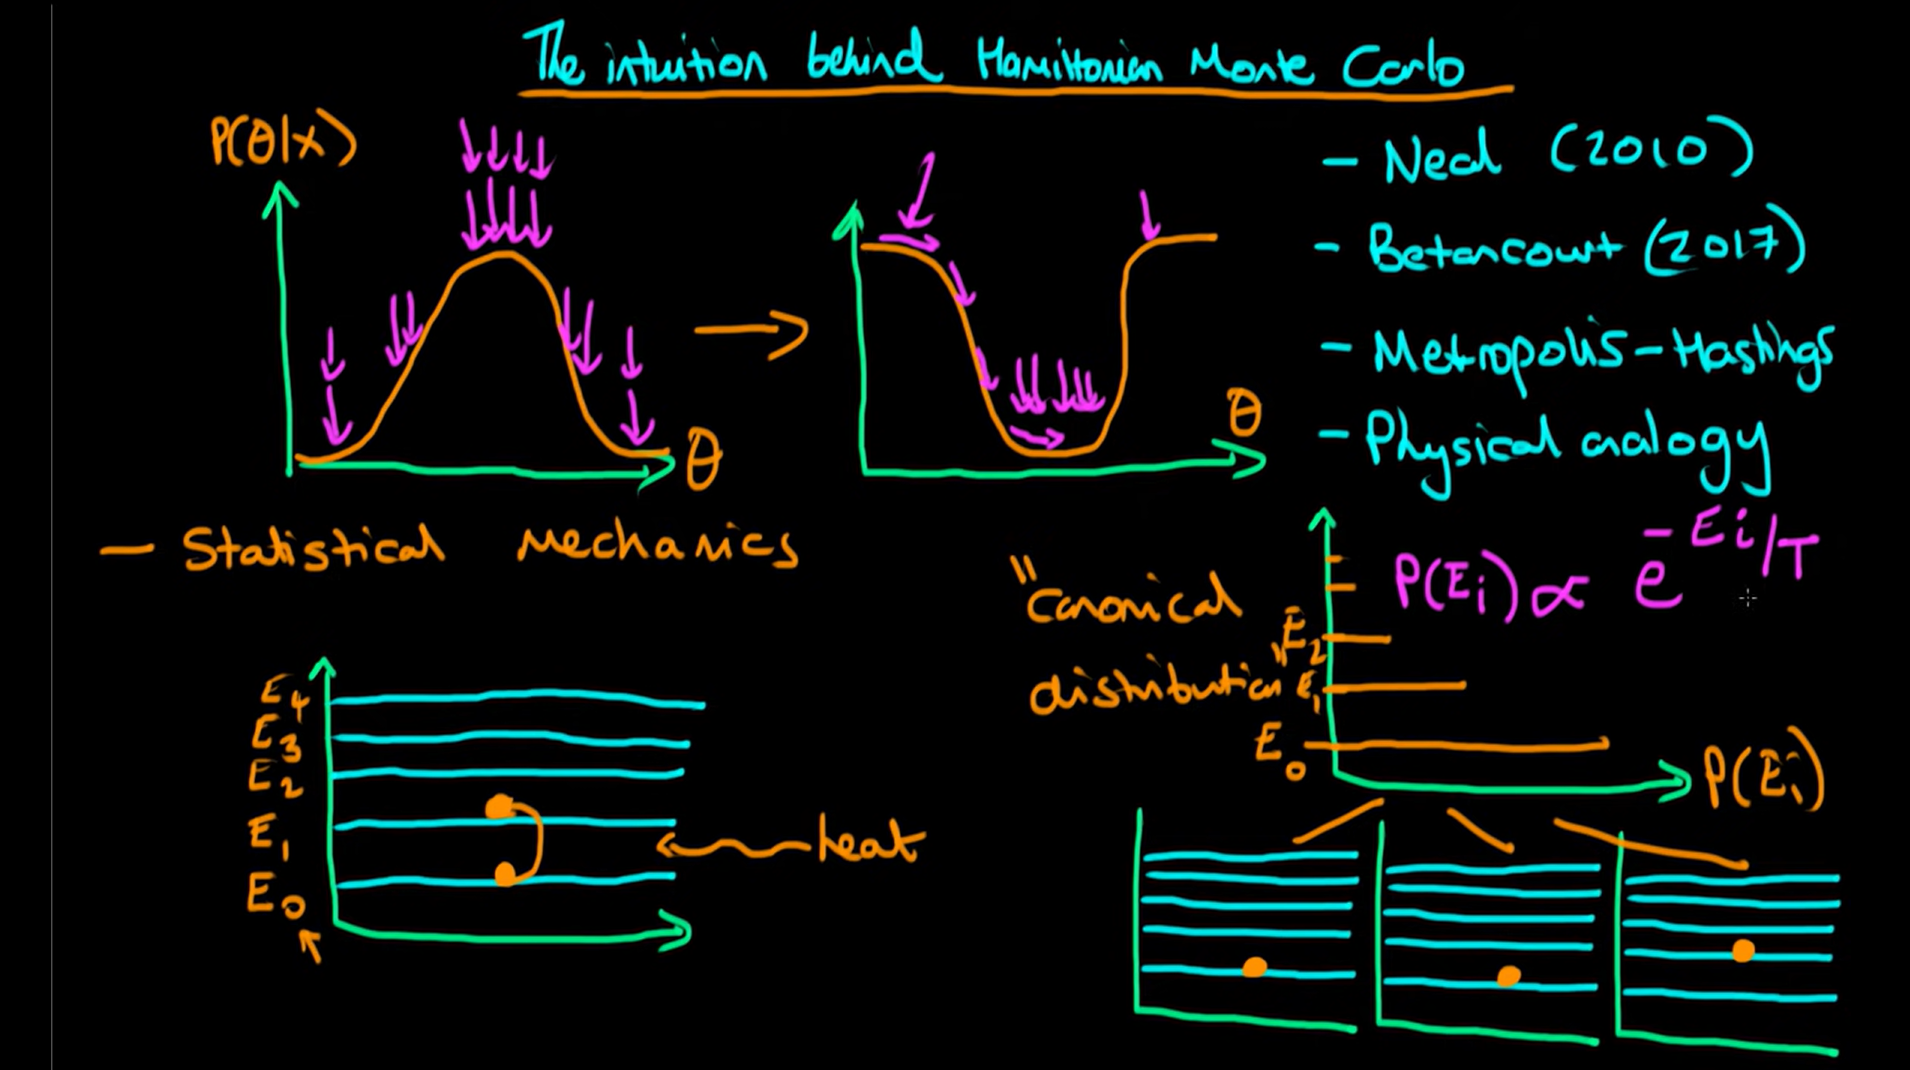 The intuition behind Hamiltonian Monte Carlo
P(θ|x)
θ
θ
- Neal (2010)
- Betancourt (2017)
- Metropolis-Hastings
- Physical analogy
- Statistical mechanics
"canonical
distribution"
P(Ei) ∝ e^-Ei/T
E2
E1
E0
P(Ei)
E4
E3
E2
E1
E0
heat